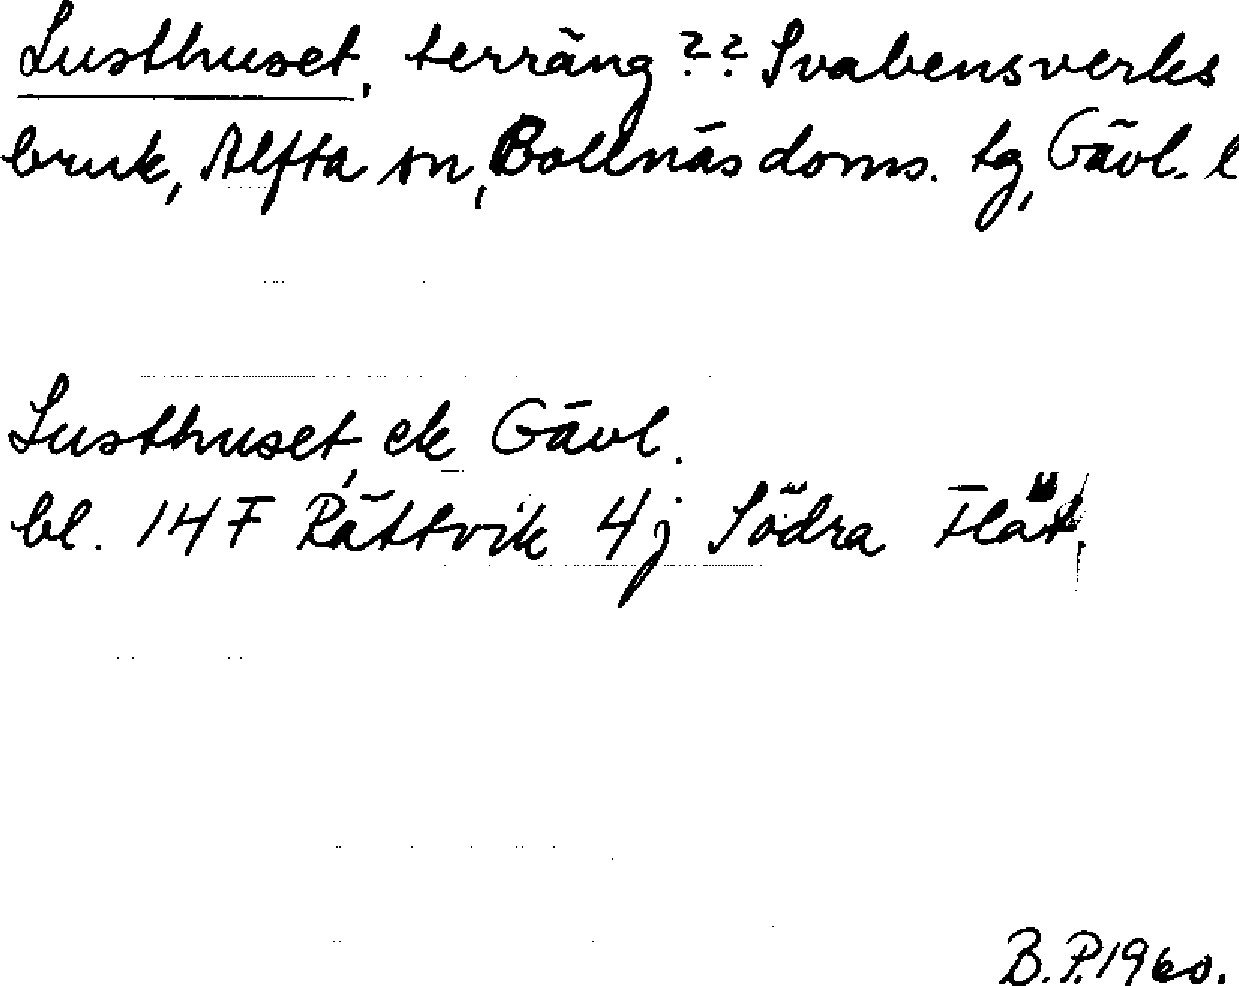 Lusthuset, terräng?? Svabensverks
bruk, Alfta sn, Bollnäs doms. tg, Gävl. l
Lusthuset, ek Gävl.
bl. 14 F Rättvik 4j Södra Flät,
B.P. 1960.